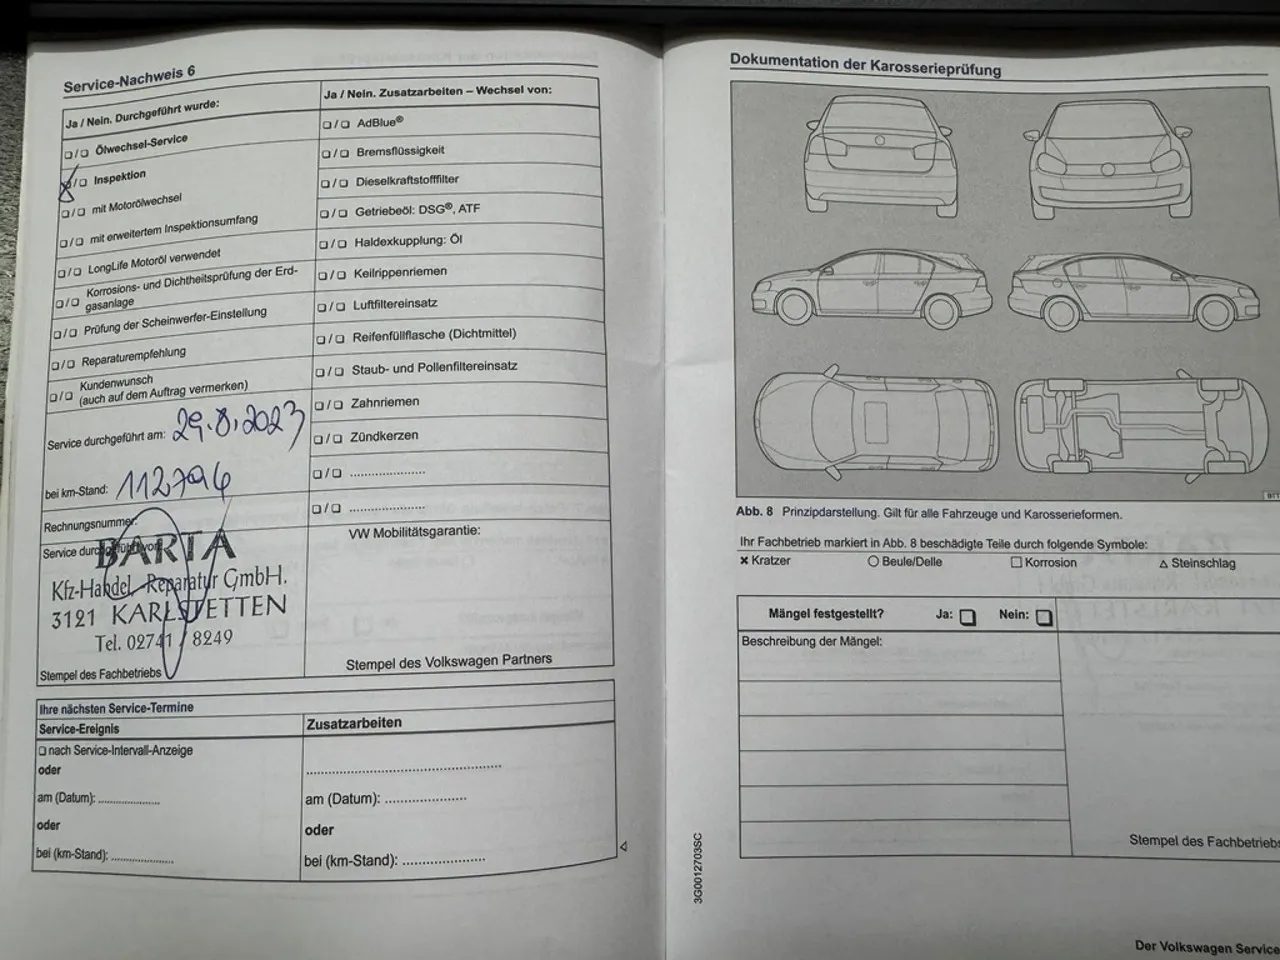 Service-Nachweis 6
Ja / Nein. Durchgeführt wurde:
❏/❏ Ölwechsel-Service
❏/❏ Inspektion
❏/❏ mit Motorölwechsel
❏/❏ mit erweitertem Inspektionsumfang
❏/❏ LongLife Motoröl verwendet
❏/❏ Korrosions- und Dichtheitsprüfung der Erd-
gasanlage
❏/❏ Prüfung der Scheinwerfer-Einstellung
❏/❏ Reparaturempfehlung
❏/❏ Kundenwunsch
(auch auf dem Auftrag vermerken)
Service durchgeführt am: 29.8.2023
bei km-Stand: 112794
Rechnungsnummer:
Service durchgeführt von:
BARTA
Kfz-Handel Reparatur GmbH.
3121 KARLSTETTEN
Tel. 02741 / 8249
Stempel des Fachbetriebs
Ja / Nein. Zusatzarbeiten – Wechsel von:
❏/❏ AdBlue®
❏/❏ Bremsflüssigkeit
❏/❏ Dieselkraftstofffilter
❏/❏ Getriebeöl: DSG®, ATF
❏/❏ Haldexkupplung: Öl
❏/❏ Keilrippenriemen
❏/❏ Luftfiltereinsatz
❏/❏ Reifenfüllflasche (Dichtmittel)
❏/❏ Staub- und Pollenfiltereinsatz
❏/❏ Zahnriemen
❏/❏ Zündkerzen
❏/❏ ......................
❏/❏ ......................
VW Mobilitätsgarantie:
Stempel des Volkswagen Partners
Ihre nächsten Service-Termine
Service-Ereignis
❏ nach Service-Intervall-Anzeige
oder
am (Datum): ..................
oder
bei (km-Stand): ..................
Zusatzarbeiten
..................................................
am (Datum): .....................
oder
bei (km-Stand): .....................
Dokumentation der Karosserieprüfung
Abb. 8 Prinzipdarstellung. Gilt für alle Fahrzeuge und Karosserieformen.
Ihr Fachbetrieb markiert in Abb. 8 beschädigte Teile durch folgende Symbole:
× Kratzer ○ Beule/Delle □ Korrosion △ Steinschlag
Mängel festgestellt? Ja: ❏ Nein: ❏
Beschreibung der Mängel:
Stempel des Fachbetriebs
3G0012703SC
Der Volkswagen Service